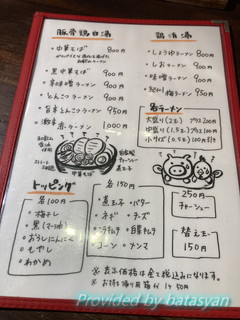 豚骨鶏白湯
・中華そば 800円
・黒中華そば 900円
・辛味噌ラーメン 950円
・とんこつラーメン 900円
・旨辛とんこつラーメン 950円
・激辛 赤ラーメン 1000円
中華そば
自家製
チャーシュー
煮玉子
トッピング
各100円
・梅干し
・黒(マー油)
・おろしにんにく
・もやし
・わかめ
各150円
・煮玉子 ・バター
・ネギ ・チーズ
・コーン ・メンマ
鶏清湯
・しょうゆラーメン 850円
・しおラーメン 850円
・味噌ラーメン 900円
各ラーメン
大盛り(2玉) プラス200円
中盛り(1.5玉) プラス100円
小サイズ(0.5玉) 100円引き
250円
チャーシュー
替え玉
150円
※表示価格は全て税込みになります。
※お持ち帰り用箱が1ヶ50円
Provided by batasyan